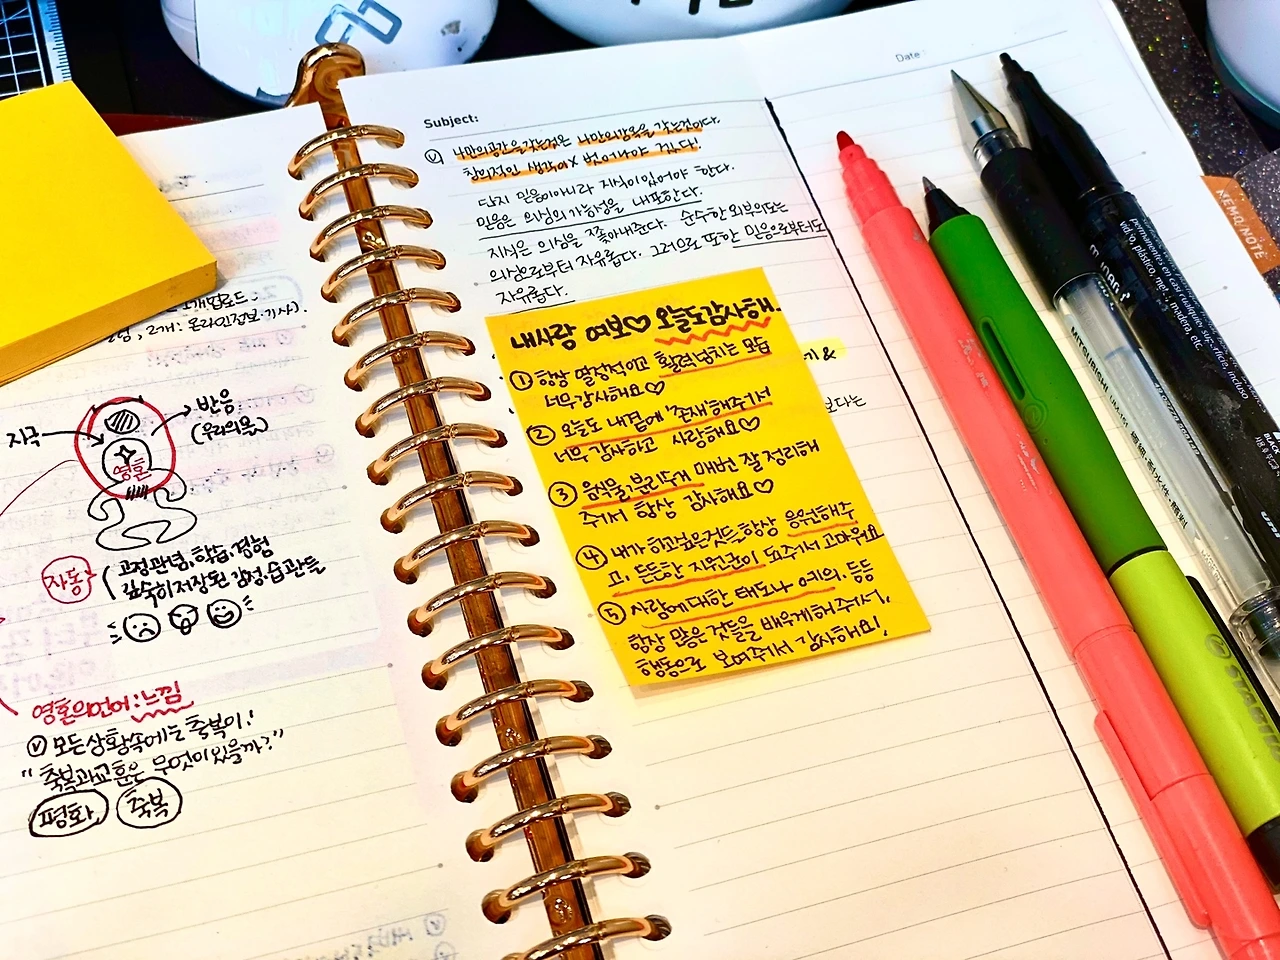 1개업로드:
2개: 온라인정보·기사).
자극
반응
(우리의몸)
영혼
자동
고정관념, 학습, 경험
깊숙히저장된 감정·습관들
영혼의언어:느낌
ⓥ 모든상황속에는 축복이!
"축복과교훈은 무엇이있을까?"
평화 축복
Subject:
Date
ⓥ 나만의공간을갖는것은 나만의감옥을 갖는것이다.
창의적인 생각이X 벗어나야 겠다!
단지 믿음이아니라 지식이있어야 한다.
믿음은 의심의가능성을 내포한다.
지식은 의심을 쫓아내준다. 순수한 외부의도는
의심으로부터 자유롭다. 그러므로 또한 믿음으로부터도
자유롭다.
내사랑 여보♡ 오늘도감사해.
① 항상 열정적이고 활력넘치는 모습
너무감사해요♡
② 오늘도 내곁에 '존재'해주가서
너무 감사하고 사랑해요♡
③ 음식물,분리두게 매번 잘 정리해
주셔서 항상 감사해요♡
④ 내가 하고싶은것든,항상 응원해주
고, 든든한 지원군이 되주셔서 고마워요
⑤ 사람에대한 태도나 예의, 등등
항상 많은것들을 배우게해주셔서,
행동으로 보여주셔서 감사해요!
기 &
보다는
MEMO NOTE
MITSUBISHI